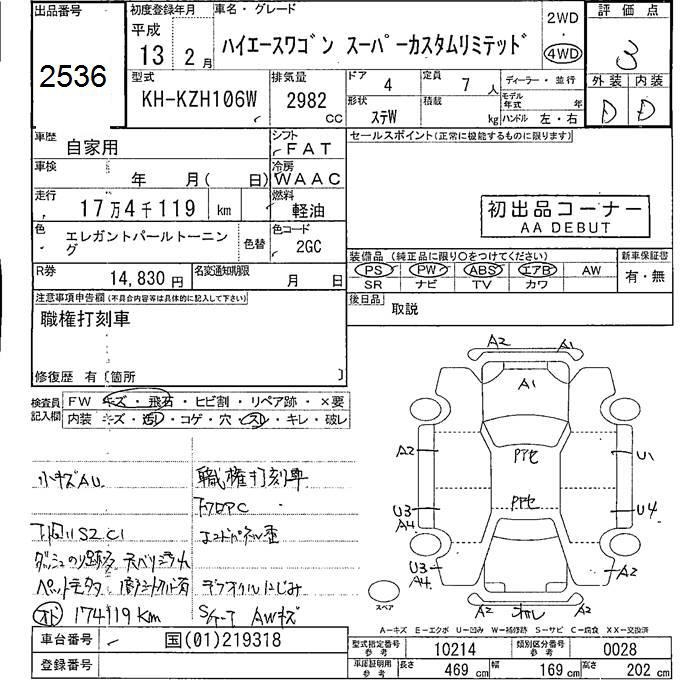 出品番号
2536
初度登録年月
平成
13 2月
車名・グレード
ハイエースワゴン スーパーカスタムリミテッド
2WD
・
4WD
評価点
3
型式
KH-KZH106W
排気量
2982
cc
ドア
4
定員
7人
ディーラー・並行
形状
ステW
積載
kg
モデル年式
年
ハンドル 左・右
外装 内装
D D
車歴
自家用
シフト
FAT
セールスポイント(正常に機能するものに限ります)
車検
年 月( 日)
冷房
WAAC
走行
17万4千119 km
燃料
軽油
初出品コーナー
AA DEBUT
色
エレガントパールトーニング
色替
色コード
2GC
装備品(純正品に限り○をつけてください)
新車保証書
PS PW ABS エアB AW
SR ナビ TV カワ
有・無
R券
14,830円
名変通知期限
月 日
後日品
取説
注意事項申告欄(不具合内容等は具体的に記入して下さい)
職権打刻車
修復歴 有〔箇所 〕
検査員記入欄
FW キズ・飛石・ヒビ割・リペア跡・×要
内装 キズ・汚レ・コゲ・穴・スレ・キレ・破レ
A2 A1
A1
小キズAU
職権打刻車
A2
アセ
U1
下廻りS2 C1
エンドパネル歪
アセ
U3
A4
U4
ダッシュのり跡
U3
A4
A2
デフオイルにじみ
オド 174119Km
AWキズ
スペア
A2 A2
A-キズ E-エクボ U-凹み W-補修跡 S-サビ C-腐食 XX-交換済
車台番号
国(01)219318
型式指定番号
参考
10214
類別区分番号
参考
0028
登録番号
車庫証明用
参考
長さ
469 cm
幅
169 cm
高さ
202 cm